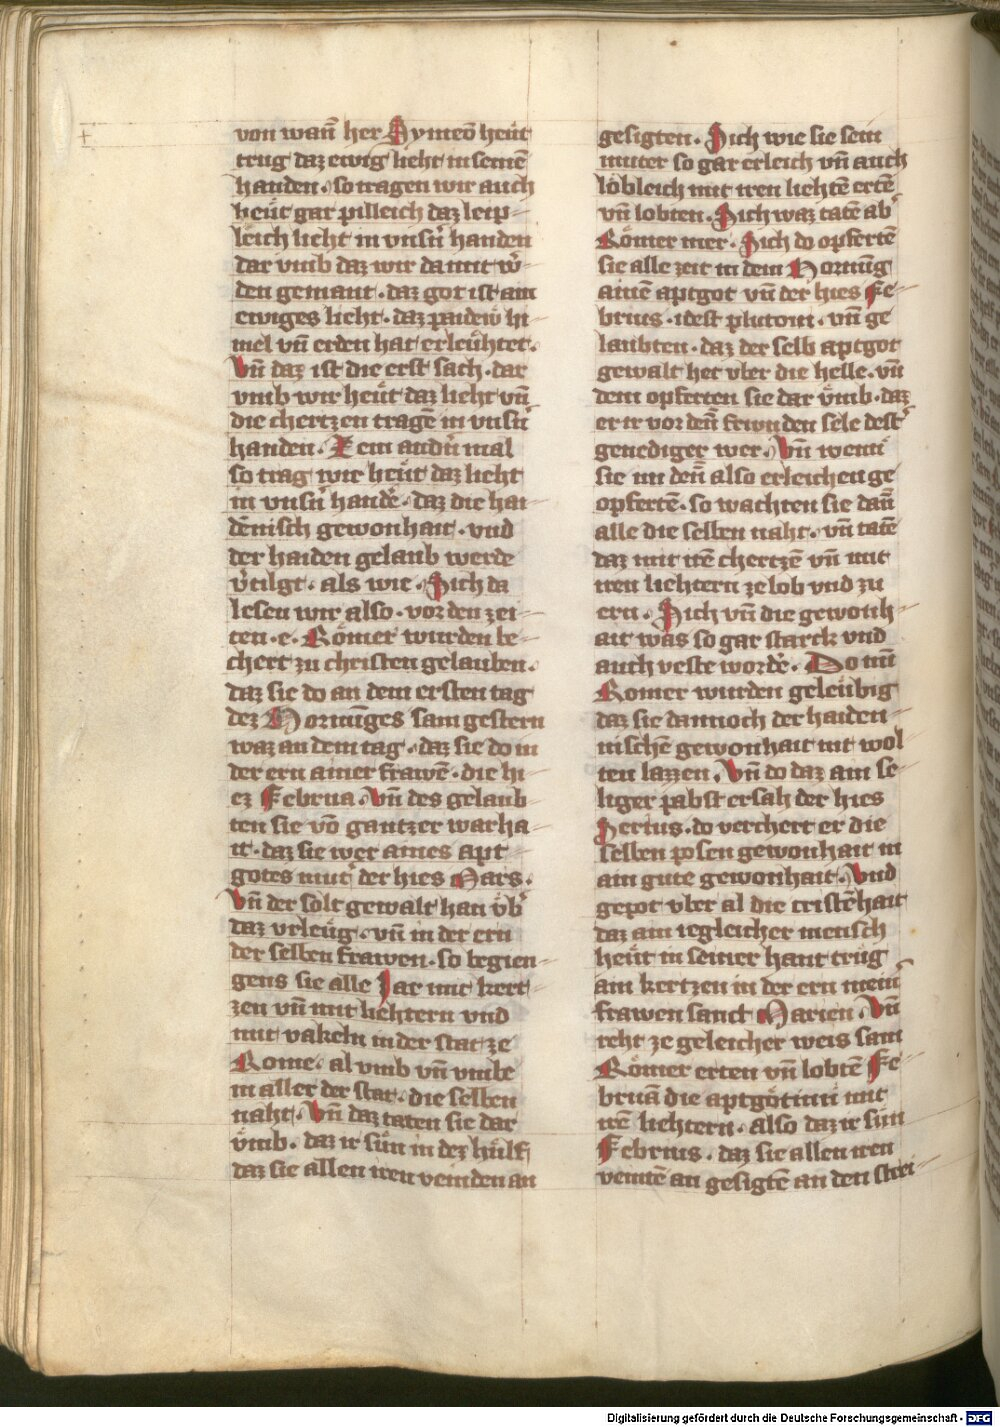 von wann̄ her Symeō heůt
trug daz ewig lieht in seinē
handen · so tragen wir auch
heůt gar pilleich daz leip-
leich lieht in vnsn̄ handen
dar vmb daz wir da mit w̄-
den gemant · daz got ist ain
ewiges lieht · daz paideů hi-
mel vn̄ erden hat erleůhtet ·
Vn̄ daz ist die erst sach · dar
vmb wir heůt daz lieht vn̄
die chertzen tragē in vnsn̄
handen · Zem andn̄ mal
so trag wir heůt daz lieht
in vnsn̄ handē · daz die hai-
dēnisch gewonhait · vnd
der haiden gelaub werde
v̄tilgt · als wie · Sich da
lesen wir also · vor den zei-
ten · e · Römer wurden be-
chert zu christen gelauben ·
daz sie do an dem ersten tag
dez Hornůnges sam gestern
waz an dem tag · daz sie do in
der ern ainer frawē · die hi-
ez Februa · Vn̄ des gelaub-
ten sie vō gantzer warha-
it · daz sie wer aines apt-
gotes mut̄ der hies Mars ·
Vn̄ der solt gewalt han v̈b̄
daz vrleůg · vn̄ in der ern
der selben frawen · so begien-
gens sie alle Jar mit kert-
zen vn̄ mit liehtern vnd
mit vakeln in der stat ze
Rome · al vmb vn̄ vmbe
in aller der stat · die selben
naht · Vn̄ daz taten sie dar
v̈mb · daz ir sůn in dez hůlf
daz sie allen iren veinden an
gesigten · Sich wie sie sein
muter so gar erleich vn̄ auch
löbleich mit iren liehtē ertē
vn̄ lobten · Sich waz tatē ab̄
Römer mer · Sich do opfertē
sie alle zeit in dem Hornůg
ainē aptgot vn̄ der hies Fe-
brius · idest plutoni · vn̄ ge
laubten · daz der selb aptgot
gewalt het vber die helle · vn̄
dem opferten sie dar v̈mb · daz
er ir vor den̄ frewnden sele dest̄
genediger wer · Vn̄ wenn̄
sie im den̄ also erleichen ge
opfertē · so wachten sie dan̄
alle die selben naht · vn̄ tatē
daz mit irē chertzē vn̄ mit
iren liehtern ze lob vnd zu
ern · Sich vn̄ die gewonh-
ait was so gar starck vnd
auch veste wordē · Do nun
Romer wurden geleůbig
daz sie dannoch der haiden-
nischē gewonhait nit wol
ten lazzen · Vn̄ do daz ain se-
liger pabst ersah der hies
Serius · do verchert er die
selben posen gewonhait in
ain gute gewonhait · Vnd
gepot vber al die cristēhait
daz ain iegleicher mensch
heůt in seiner hant trůg
ain kertzen in der ern mein̄
frawen sanct Marien · Vn̄
reht ze geleicher weis sam
Römer erten vn̄ lobtē Fe-
bruā die aptgötinn mit
irē liehtern · also daz ir sůn
Febrius · daz sie allen iren
veintē an gesigtē an den strei-
Digitalisierung gefördert durch die Deutsche Forschungsgemeinschaft - DFG